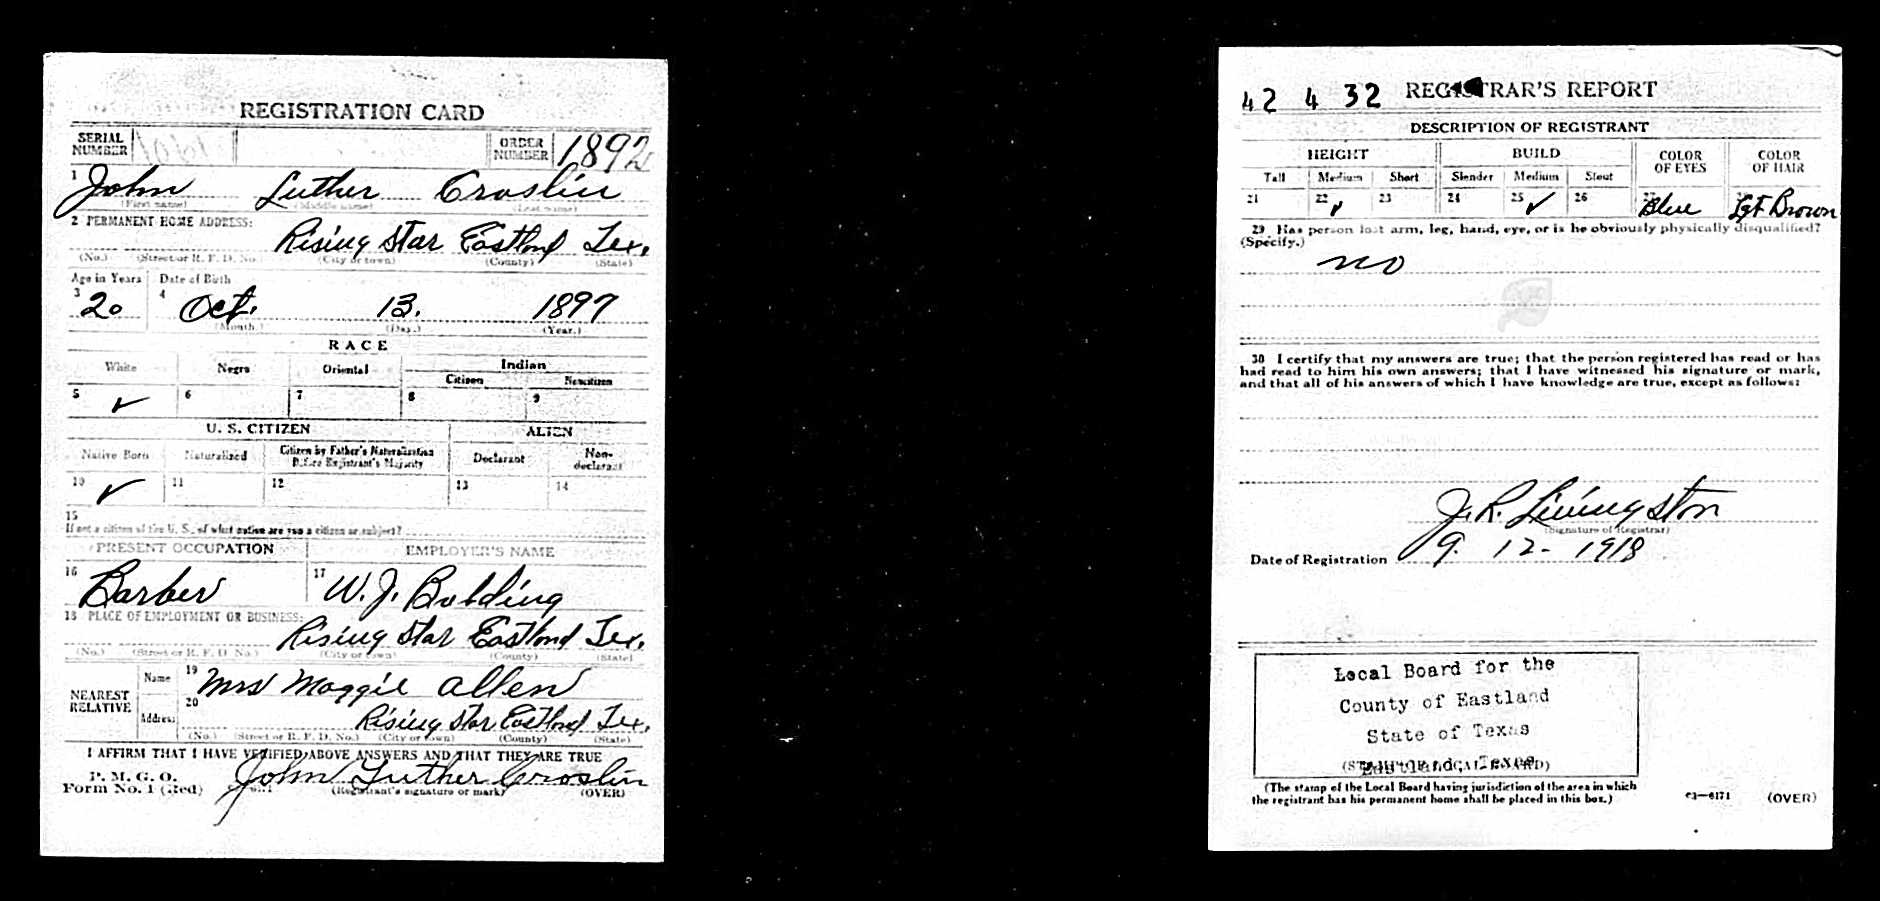 REGISTRATION CARD
SERIAL NUMBER
ORDER NUMBER 1892
1 John Luther Croslin
(First name) (Middle name) (Last name)
2 PERMANENT HOME ADDRESS:
Rising Star Eastland Tex.
(No.) (Street or R. F. D. No.) (City or town) (County) (State)
Age in Years Date of Birth
3 20 4 Oct. 13. 1897
(Month.) (Day.) (Year.)
RACE
White Negro Oriental Indian
Citizen Noncitizen
5 ✓ 6 7 8 9
U. S. CITIZEN ALIEN
Native Born Naturalized Citizen by Father's Naturalization Before Registrant's Majority Declarant Non-declarant
10 ✓ 11 12 13 14
15
If not a citizen of the U. S., of what nation are you a citizen or subject?
PRESENT OCCUPATION EMPLOYER'S NAME
16 Barber 17 W. J. Bolding
18 PLACE OF EMPLOYMENT OR BUSINESS:
Rising Star Eastland Tex.
(No.) (Street or R. F. D. No.) (City or town) (County) (State)
NEAREST RELATIVE
Name 19 Mrs Maggie Allen
Address 20 Rising Star Eastland Tex.
(No.) (Street or R. F. D. No.) (City or town) (County) (State)
I AFFIRM THAT I HAVE VERIFIED ABOVE ANSWERS AND THAT THEY ARE TRUE
P. M. G. O.
Form No. 1 (Red)
John Luther Croslin
(Registrant's signature or mark) (OVER)
42 4 32 REGISTRAR'S REPORT
DESCRIPTION OF REGISTRANT
HEIGHT BUILD COLOR OF EYES COLOR OF HAIR
Tall Medium Short Slender Medium Stout
21 22 ✓ 23 24 25 ✓ 26 27 Blue Lgt Brown
29 Has person lost arm, leg, hand, eye, or is he obviously physically disqualified?
(Specify.)
no
30 I certify that my answers are true; that the person registered has read or has
had read to him his own answers; that I have witnessed his signature or mark,
and that all of his answers of which I have knowledge are true, except as follows:
J. R. Livingston
(Signature of Registrar)
Date of Registration 9. 12 - 1918
Local Board for the
County of Eastland
State of Texas
Eastland, Texas
(STAMP OF LOCAL BOARD)
(The stamp of the Local Board having jurisdiction of the area in which
the registrant has his permanent home shall be placed in this box.)
03—6171 (OVER)